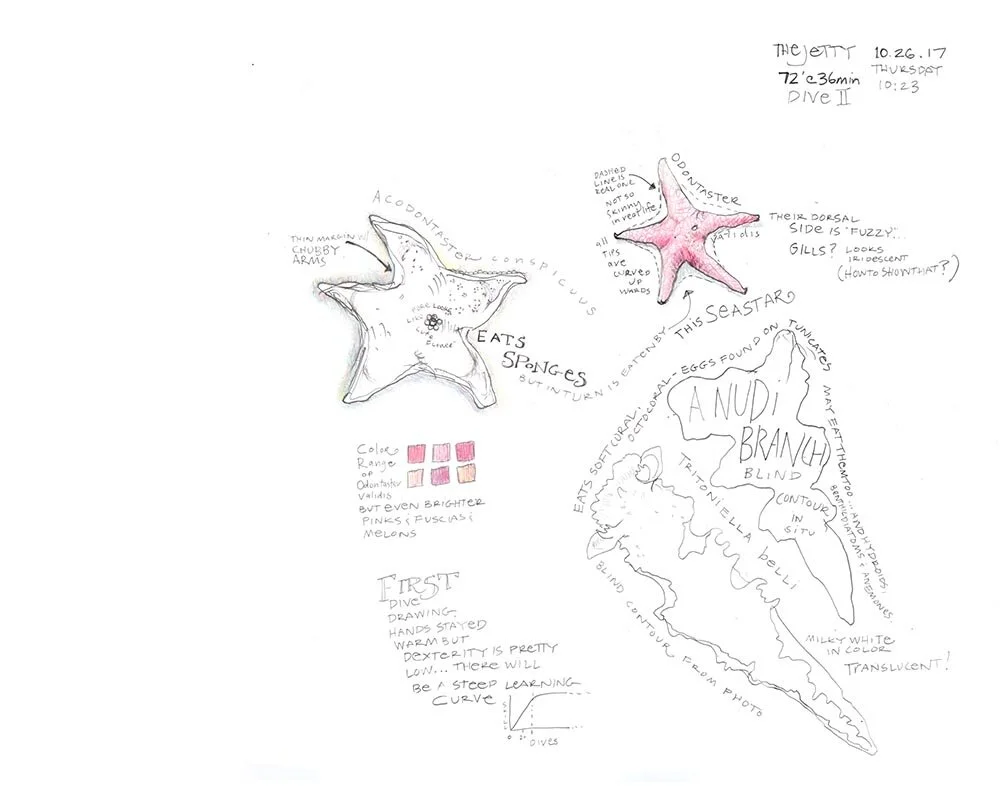 THE JETTY 10.26.17
72' @ 36min THURSDAY
DIVE II 10:23
ACODONTASTER CONSPICUUS
THIN MARGIN W/
CHUBBY
ARMS
PORE LOOKS
LIKE
EATS
SPONGES
BUT IN TURN IS EATEN BY THIS SEASTAR
DASHED
LINE IS
REAL ONE
NOT SO
SKINNY
in real life
all
TIPS
are
CURVED
UP
WARDS
ODONTASTER
validis
THEIR DORSAL
SIDE IS "FUZZY"...
GILLS? LOOKS
IRIDESCENT
(HOW TO SHOW THAT?)
Color
Range
of
Odontaster
validis
BUT EVEN BRIGHTER
PINKS & FUSCIAS &
MELONS
EATS SOFT CORAL, OCTOCORAL - EGGS FOUND ON TUNICATES
MAY EAT THEM TOO... AND HYDROIDS,
BENTHIC DIATOMS & ANEMONES.
A NUDI
BRANCH
BLIND
CONTOUR
IN
SITU
TRITONIELLA belli
BLIND CONTOUR FROM PHOTO
MILKY WHITE
IN COLOR
TRANSLUCENT!
FIRST
DIVE
DRAWING.
HANDS STAYED
WARM BUT
DEXTERITY IS PRETTY
LOW... THERE WILL
BE A STEEP LEARNING
CURVE
SKILL
0
DIVES